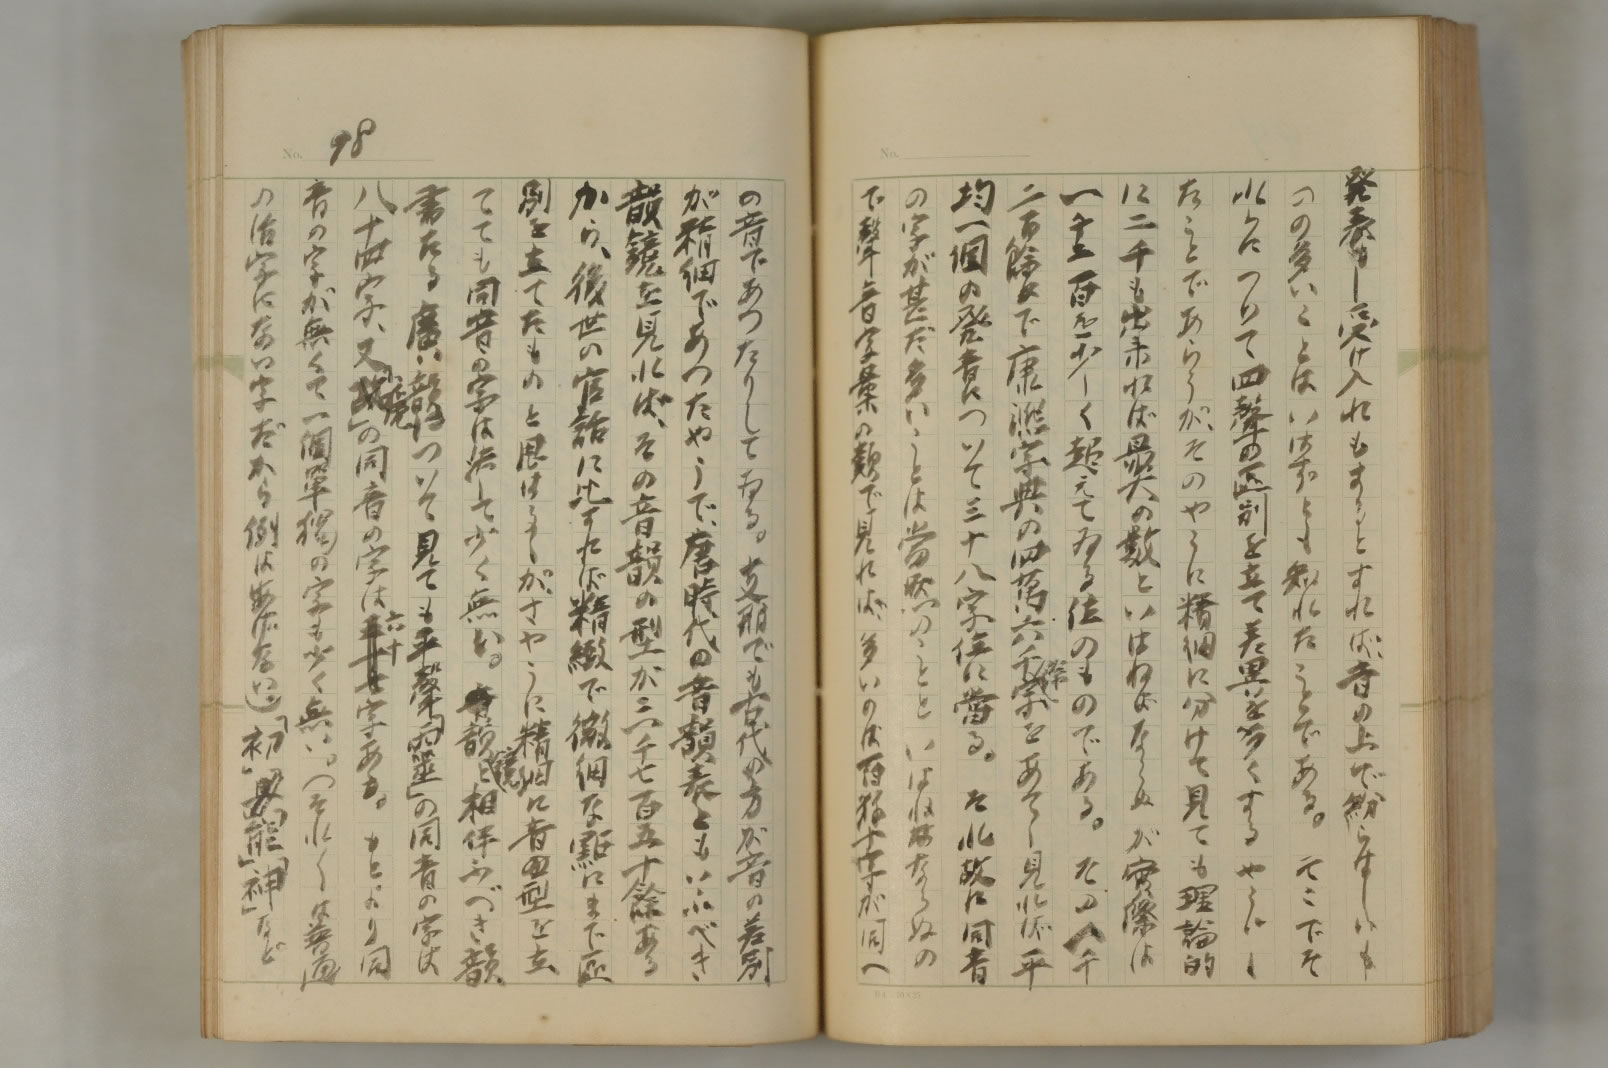 発表もし受け入れもするとすれば、音の上で紛らはしいも
のの多いことはいはずとも知れたことである。そこでそ
れらについて四聲の区別を立て差異を多くするやうにし
たことであらうが、そのやうに精細に分けて見ても理論的
に二千も出来れば最大の数といはねばならぬが、實際は
一千二百を少しく超えてゐる位のものである。その一千
二百餘で康熙字典の四萬六千餘字をあてゝ見れば平
均一個の発音について三十八字位に當る。それ故に同音
の字が甚だ多いことは當然のことといはねばならぬの
で聲音字彙の類で見れば、多いのは百数十字が同一
No. 98
の音であつたりしてゐる。支那でも古代の方が音の差別
が精細であつたやうで、唐時代の音韻表ともいふべき
韻鏡を見れば、その音韻の型が三千七百五十餘ある
から、後世の官話に比すれば精緻で微細な點にまで区
別を立てたものと思はるゝが、さやうに精細に音の型を立
てても同音の字は決して少く無い。韻鏡と相伴ふべき韻
書たる廣韻について見ても平聲の「」の同音の字は
八十四字、又「」の同音の字は六十字ある。もとより同
音の字が無くて一個單獨の字も少く無い。(それは普通
の活字にない字だから例はあげない)「初」「男」「能」「神」など
No.